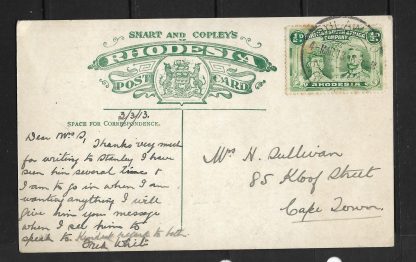 SMART AND COPLEY'S
RHODESIA
POST CARD
SPACE FOR CORRESPONDENCE.
3/3/13.
Dear Mrs S,
Thanks very much
for writing to Stanley I have
seen him several times &
I am to go in when I am
wanting anything I will
give him your message
when I see him to
speak to. Kindest regards to both.
Mrs H. Sullivan
85 Kloof Street
Cape Town.
½D
BRITISH SOUTH AFRICA
COMPANY
½D
RHODESIA